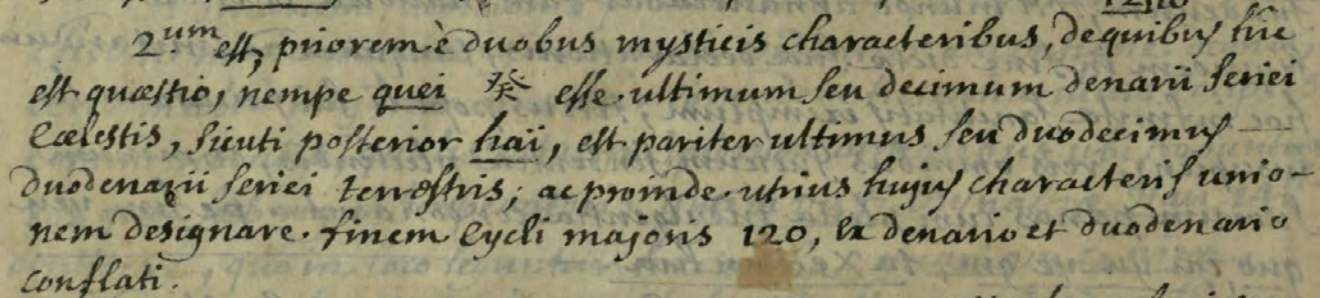 2.um est, priorem è duobus mysticis characteribus, de quibus hîc
est quæstio, nempe quei 癸 esse ultimum seu decimum denarii seriei
cælestis, sicuti posterior haï, est pariter ultimus seu duodecimus
duodenarii seriei terrestris; ac proinde utrius hujus characteris unio-
nem designare finem cycli majoris 120, ex denario et duodenario
conflati.